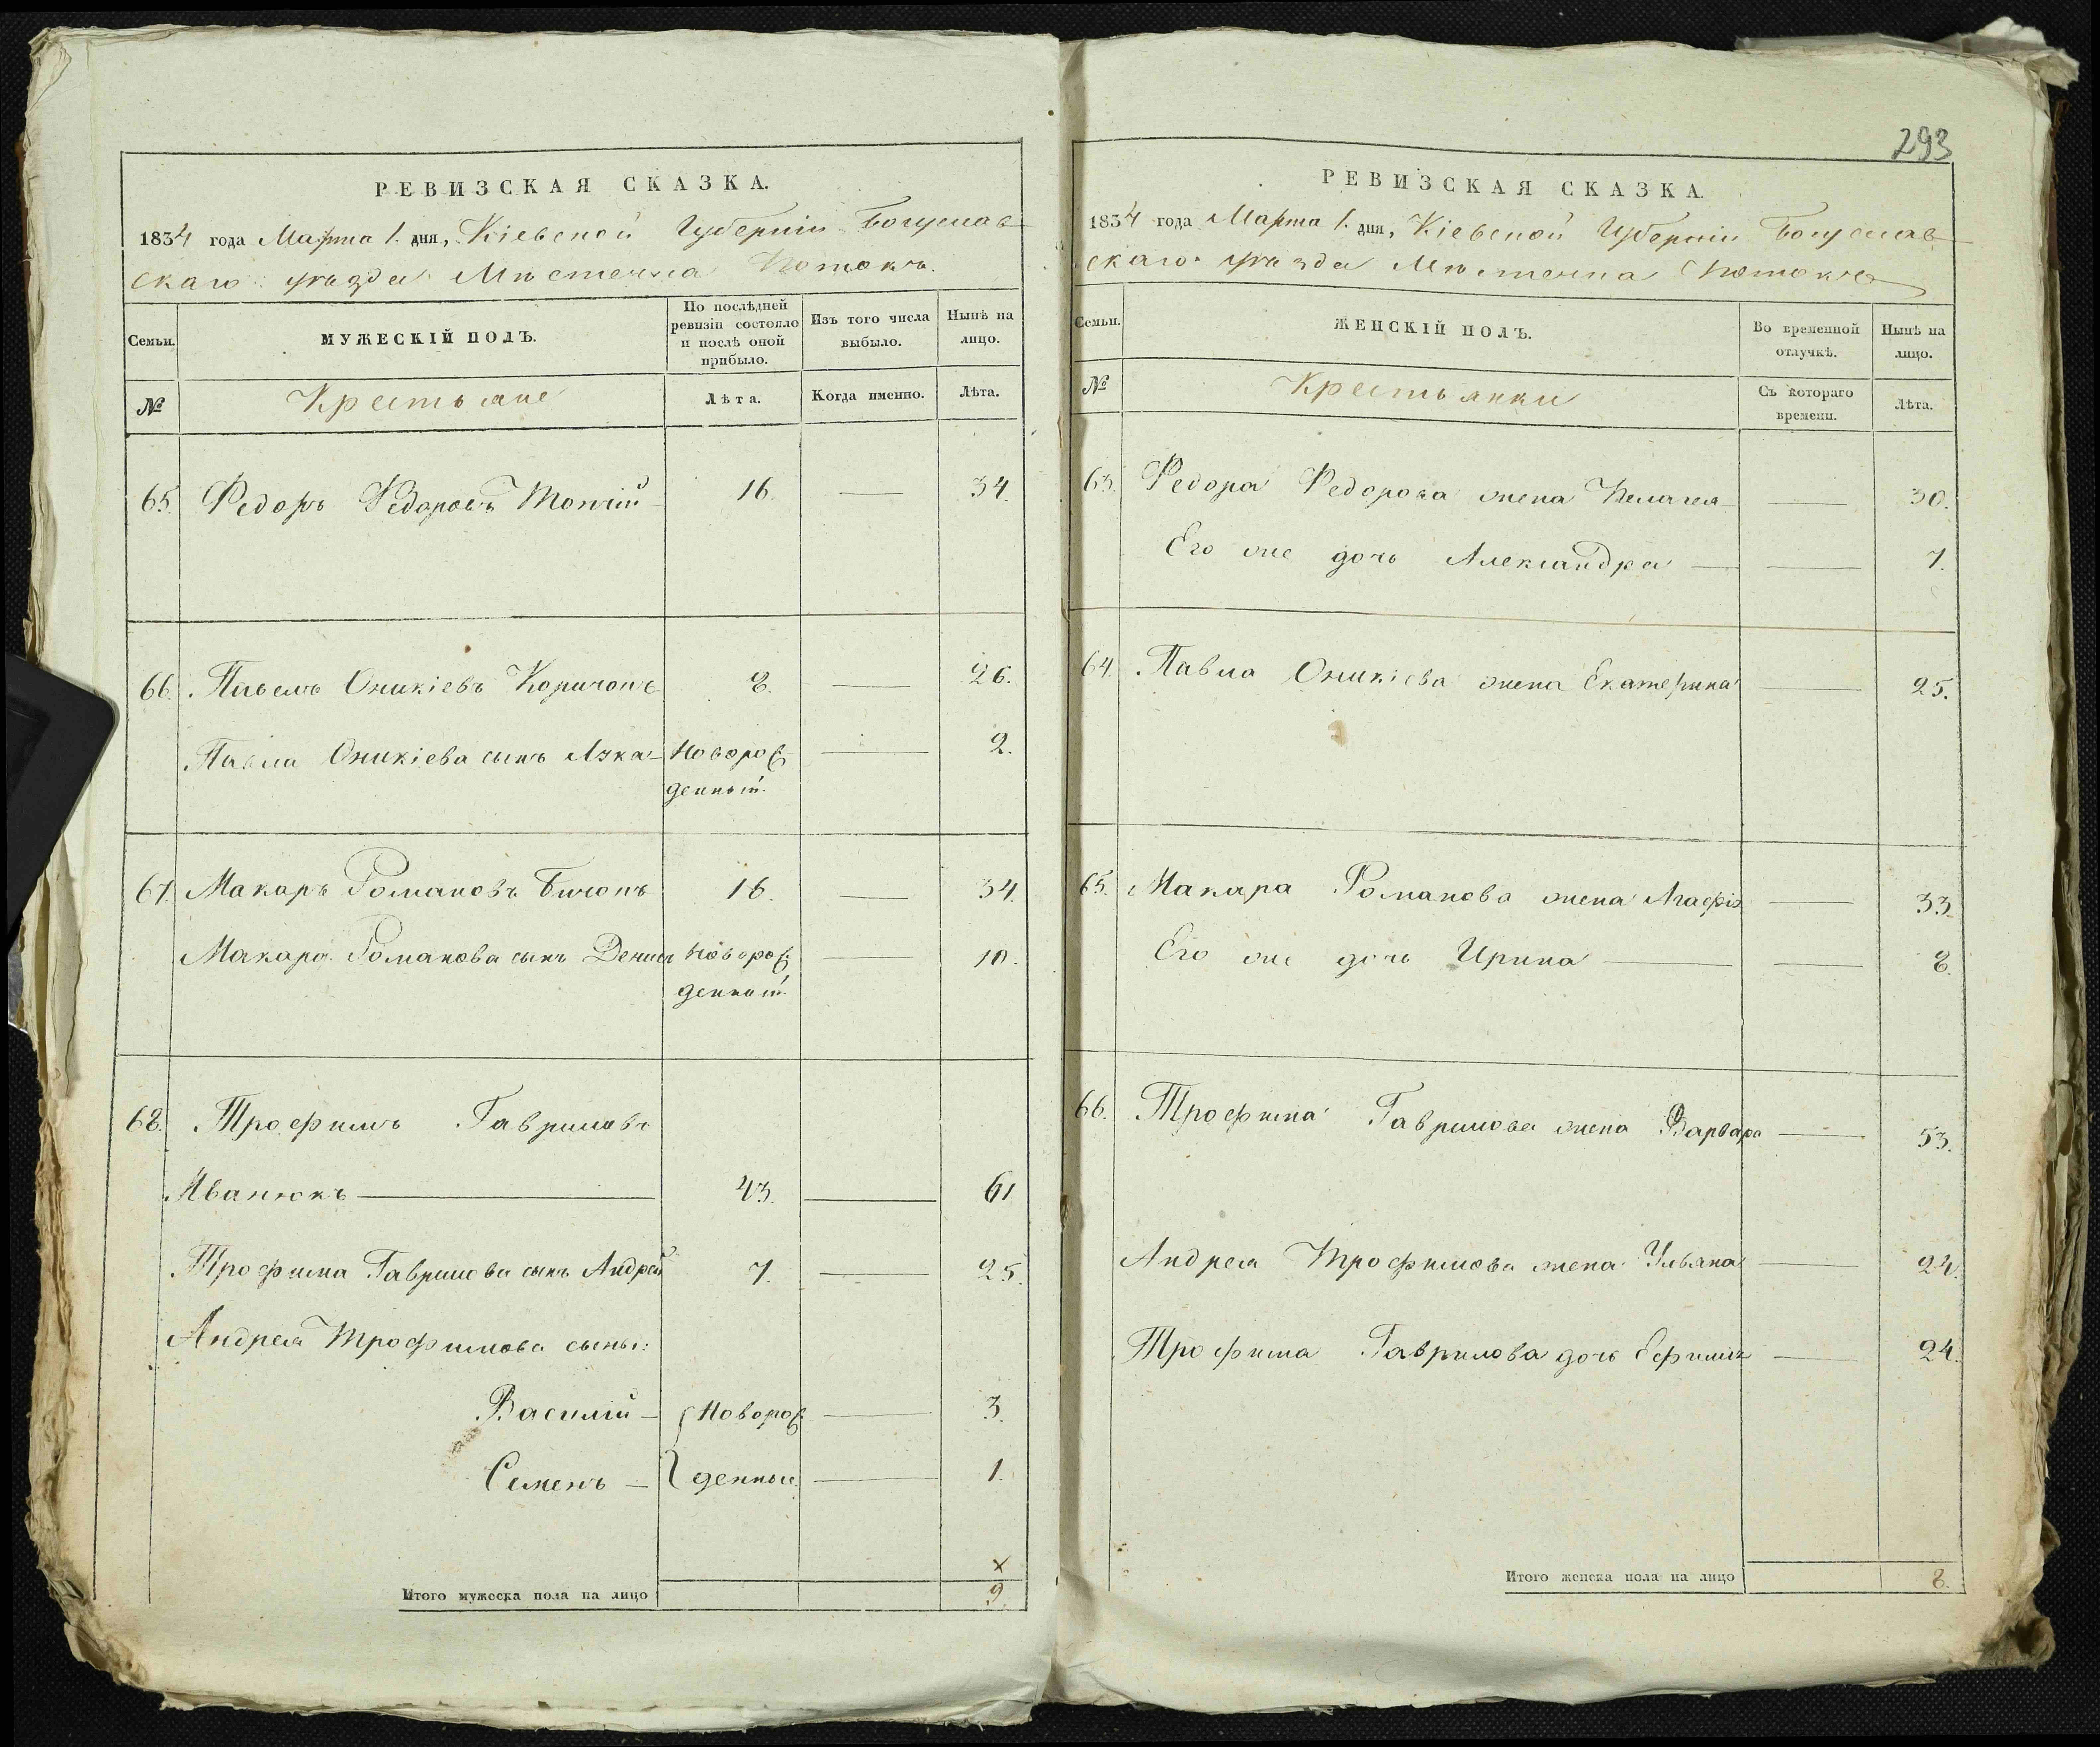 РЕВИЗСКАЯ СКАЗКА.
1834 года Марта 1. дня, Кіевской Губерніи Богуслав
скаго уѣзда Мѣстечка Потокъ.
Семьи.
МУЖЕСКІЙ ПОЛЪ.
По послѣдней
ревизіи состояло
и послѣ оной
прибыло.
Изъ того числа
выбыло.
Нынѣ на
лицо.
№ Крестьяне Лѣта. Когда именно. Лѣта.
65. Федоръ Федоровъ 16. — 34.
66. Павелъ Оникіевъ 8. — 26.
Павла Оникіева сынъ Новорож — 2.
денный.
67. Макаръ Романовъ 16. — 34.
Макара Романова сынъ Денис Новорож — 10.
денный.
68. Трофимъ Гавриловъ
Иванюкъ — 43. — 61
Трофима Гаврилова сынъ Андрей 7. — 25.
Андрея Трофимова сыны:
Василій — Новорож — 3.
Семенъ — денные — 1.
х
Итого мужеска пола на лицо 9.
293
РЕВИЗСКАЯ СКАЗКА.
1834 года Марта 1. дня, Кіевской Губерніи Богуслав
скаго уѣзда Мѣстечка Потокъ
Семьи.
ЖЕНСКІЙ ПОЛЪ.
Во временной
отлучкѣ.
Нынѣ на
лицо.
№ Крестьянки
Съ котораго
времени.
Лѣта.
63. Федора Федорова жена Пелагея — 30.
Его же дочь Александра — — 7.
64. Павла Оникіева жена Екатерина — 25.
65. Макара Романова жена Агафія — 33.
Его же дочь Ирина — — 8.
66. Трофима Гаврилова жена Варвара — 53.
Андрея Трофимова жена Ульяна — 24.
Трофима Гаврилова дочь Ефимія — 24.
Итого женска пола на лицо 8.